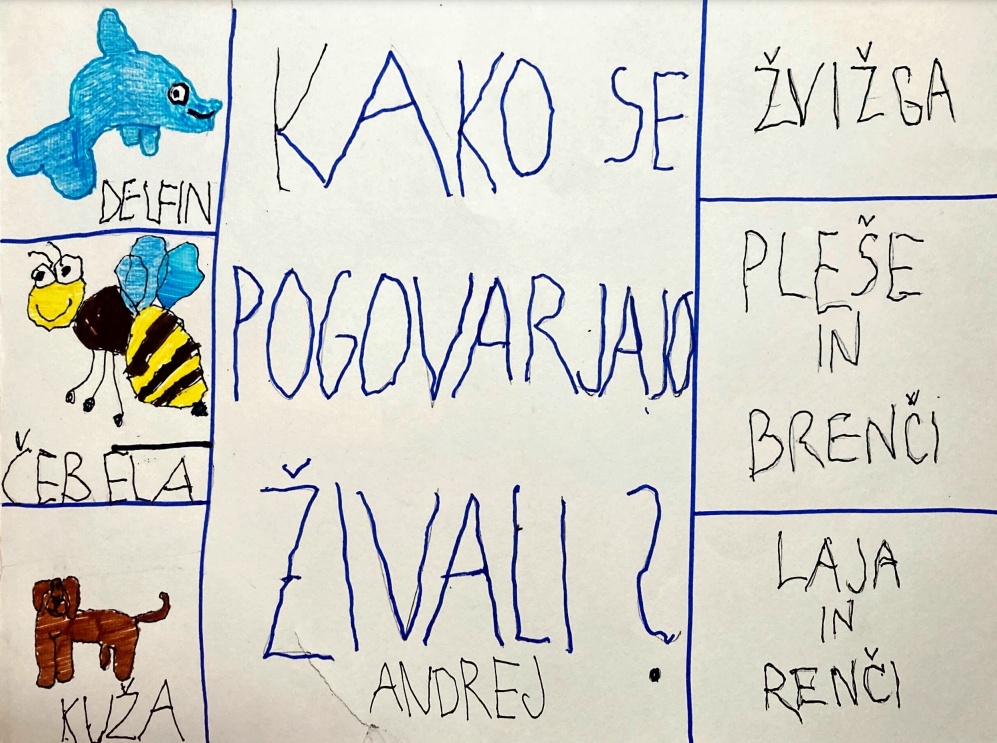 DELFIN
ČEBELA
KUŽA
KAKO SE
POGOVARJAJO
ŽIVALI?
ANDREJ
ŽVIŽGA
PLEŠE
IN
BRENČI
LAJA
IN
RENČI